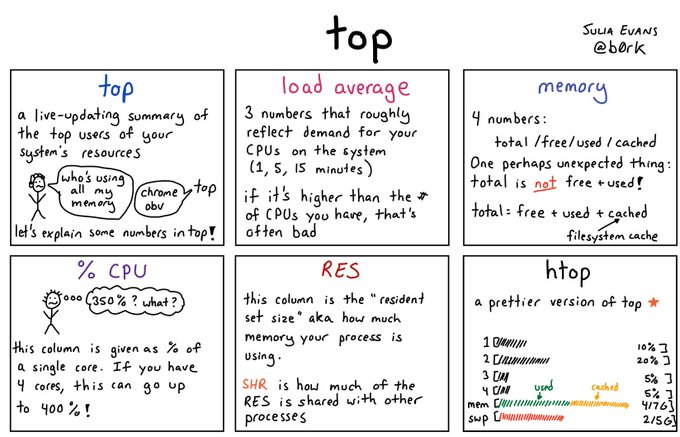 top
JULIA EVANS
@b0rk
top
a live-updating summary of
the top users of your
system's resources
who's using
all my
memory
chrome
obv
top
let's explain some numbers in top!
load average
3 numbers that roughly
reflect demand for your
CPUs on the system
(1, 5, 15 minutes)
if it's higher than the #
of CPUs you have, that's
often bad
memory
4 numbers:
total / free / used / cached
One perhaps unexpected thing:
total is not free + used!
total = free + used + cached
filesystem cache
% CPU
350%? what?
this column is given as % of
a single core. If you have
4 cores, this can go up
to 400%!
RES
this column is the "resident
set size" aka how much
memory your process is
using.
SHR is how much of the
RES is shared with other
processes
htop
a prettier version of top ★
1 [ 10% ]
2 [ 20% ]
3 [ 5% ]
4 [ 5% ]
used cached
mem [ 4/7G ]
swp [ 2/5G ]